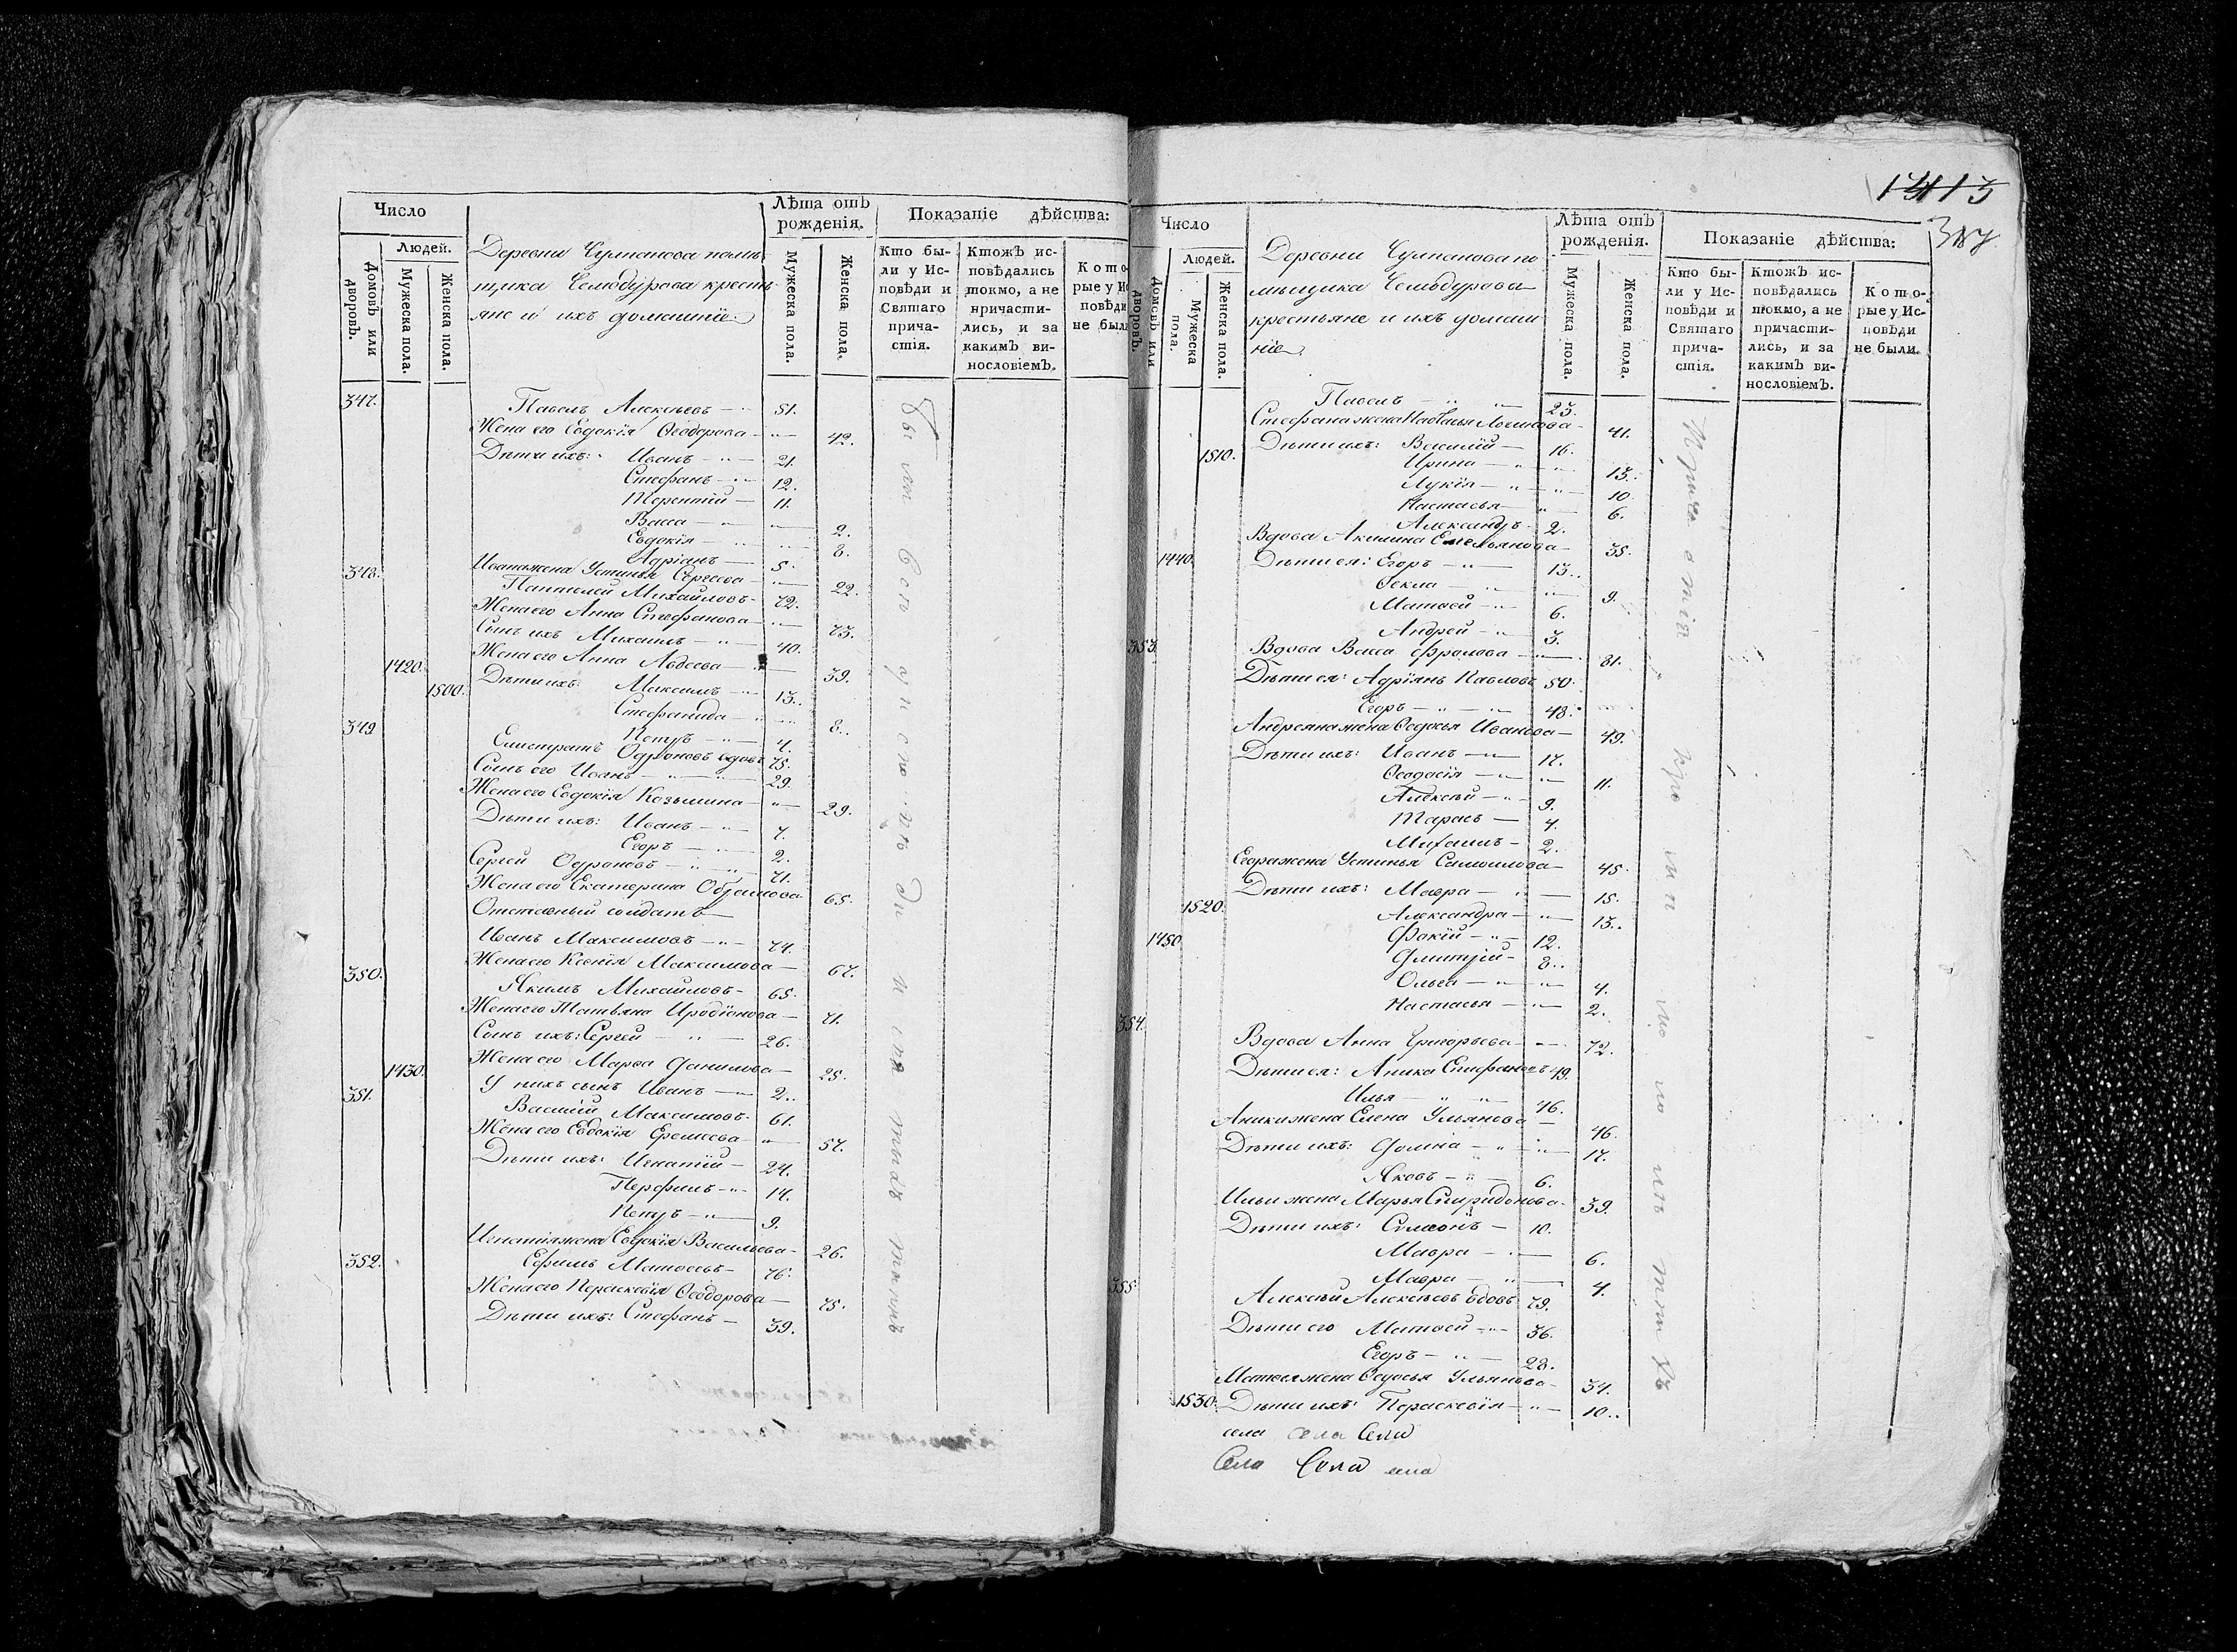 Число
Людей.
Домовъ или дворовъ.
Мужеска пола.
Женска пола.
Деревни Чулпанова помѣ-
щика Сембдурова кресть-
яне и ихъ домашніе:
Лѣта отъ рожденія.
Мужеска пола.
Женска пола.
Показаніе дѣйства:
Кто бы-
ли у Ис-
повѣди и
Святаго
прича-
стія.
Ктожъ ис-
повѣдались
токмо, а не
причасти-
лись, и за
какимъ ви-
нословіемъ.
Кото
рые у Ис
повѣди
не были
347. Павелъ Алексѣевъ 51.
Жена его Евдокія Ѳеодорова 42.
Дѣти ихъ: Иванъ 21.
Стефанъ 12.
Терентій 11.
Васса 9.
Евдокія 8.
Адріанъ 5.
Ивана жена Устинья Сергеева 22.
348. Пантелей Михайловъ 72.
Жена его Анна Стефанова 73.
Сынъ ихъ Михаилъ 40.
Жена его Анна Авдеева 39.
1420. Дѣти ихъ: Максимъ 13.
1500. Стефанида 8.
Петръ 4.
349. Елистратъ Одроновъ вдовъ 75.
Сынъ его Иванъ 29.
Жена его Евдокія Козьмина 29.
Дѣти ихъ: Иванъ 4.
Егоръ 2.
Сергей Одроновъ 71.
Жена его Екатерина Обрамова 65.
Отставный солдатъ
Иванъ Максимовъ 74.
Жена его Ксенія Максимова 67.
350. Якимъ Михайловъ 65.
Жена его Татьяна Иродіонова 71.
Сынъ ихъ: Сергей 26.
Жена его Марѳа Данилова 25.
1430. У нихъ сынъ Иванъ 2.
351. Василій Максимовъ 61.
Жена его Евдокія Еремеева 57.
Дѣти ихъ: Игнатій 24.
Перфилъ 14.
Петръ 9.
Игнатія жена Евдокія Васильева 26.
352. Ефимъ Матвеевъ 76.
Жена его Пераскевія Ѳеодорова 75.
Дѣти ихъ: Стефанъ 39.
1413
387
Число
Людей.
Домовъ или дворовъ.
Мужеска пола.
Женска пола.
Деревни Чулпанова по
мѣщика Сембдурова
крестьяне и ихъ домаш
ніе.
Лѣта отъ рожденія.
Мужеска пола.
Женска пола.
Показаніе дѣйства:
Кто бы-
ли у Ис-
повѣди и
Святаго
прича-
стія.
Ктожъ ис-
повѣдались
токмо, а не
причасти-
лись, и за
какимъ ви-
нословіемъ.
Кото-
рые у Ис-
повѣди
не были.
Павелъ 23.
Стефана жена Наталья 41.
Дѣти ихъ: Василій 16.
1510. Ирина 13.
Лукія 10.
Настасья 6.
Александръ 2.
Вдова Акилина Емельянова 35.
1440. Дѣти ея: Егоръ 13.
Ѳекла 9.
Матвей 6.
Андрей 3.
353. Вдова Васса Фролова 81.
Дѣти ея: Адріянъ Павловъ 50.
Егоръ 48.
Андреяна жена Ѳедосья Иванова 49.
Дѣти ихъ: Иванъ 17.
Ѳеодосія 11.
Алексѣй 9.
Тарасъ 4.
Михаилъ 2.
Егора жена Устинья Самоилова 45.
Дѣти ихъ: Мавра 15.
1520. Александра 13.
1450. Фокій 12.
Дмитрій 8.
Ольга 4.
Настасья 2.
354. Вдова Анна Григорьева 72.
Дѣти ея: Аника Епифановъ 49.
Илья 46.
Аники жена Елена Ульянова 46.
Дѣти ихъ: Домна 17.
Яковъ 6.
Ильи жена Марья Спиридонова 39.
Дѣти ихъ: Симеонъ 10.
Мавра 6.
Мавра 4.
355. Алексѣй Алексѣевъ вдовъ 79.
Дѣти его Матвей 36.
Егоръ 28.
Матвея жена Ѳедосья Ульянова 34.
1530. Дѣти ихъ: Пераскевія 10.
села села Села
Села Села села